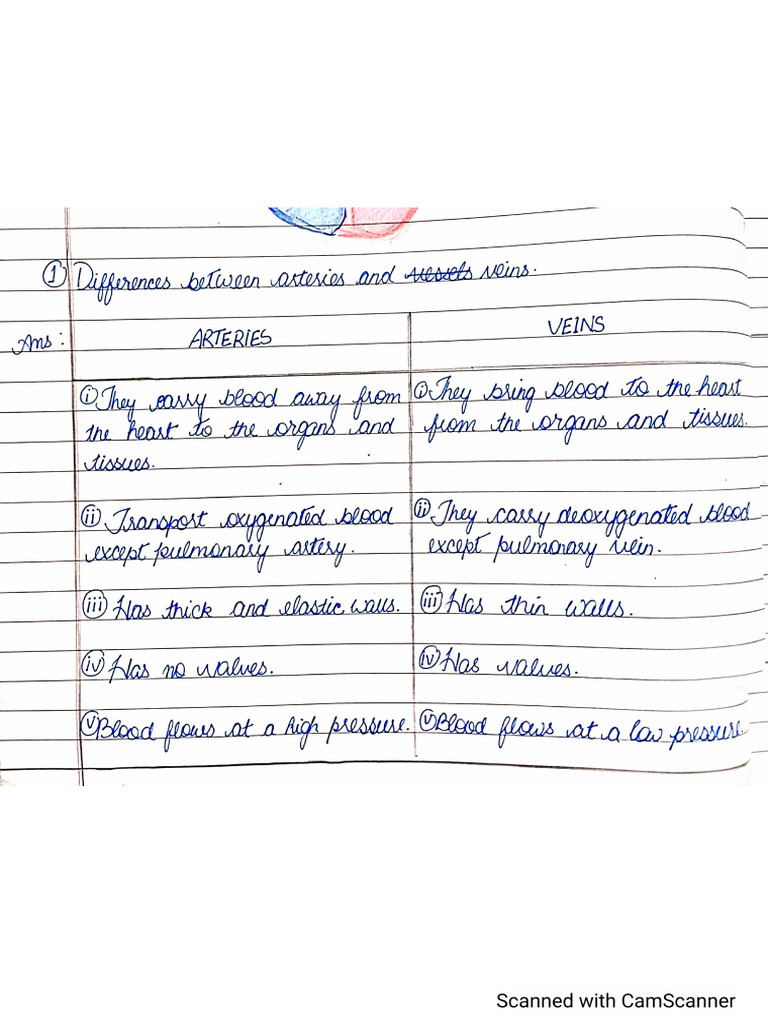 ① Differences between arteries and vessels veins.
Ans :
ARTERIES
VEINS
ⓘ They carry blood away from
the heart to the organs and
tissues.
ⓘ They bring blood to the heart
from the organs and tissues.
ⓘⓘ Transport oxygenated blood
except pulmonary artery.
ⓘⓘ They carry deoxygenated blood
except pulmonary vein.
ⓘⓘⓘ Has thick and elastic walls.
ⓘⓘⓘ Has thin walls.
ⓘⓥ Has no valves.
ⓘⓥ Has valves.
ⓥ Blood flows at a high pressure.
ⓥ Blood flows at a low pressure
Scanned with CamScanner